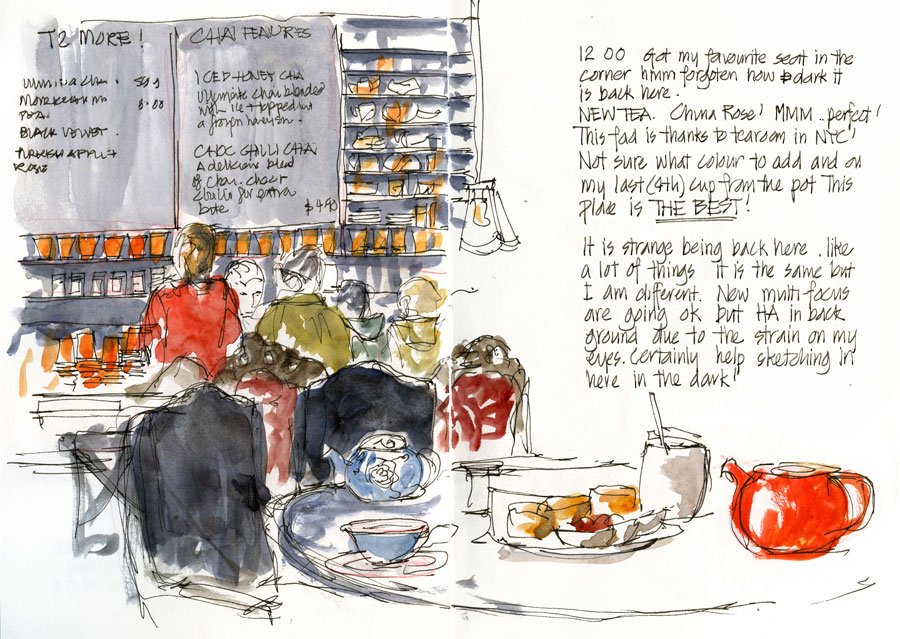 T2 MORE!
CHAI FEATURES
CHAI.
BLACK VELVET.
TURKISH APPLE +
ROSE
ICED HONEY CHAI
Ultimate Chai blended
with ice + topped with
a frozen honey
CHOC CHILLI CHAI
A delicious blend
of Chai. Choc +
Chilli for extra
bite
$4.90
12 00 Got my favourite seat in the
corner hmm forgoten how dark it
is back here.
NEW TEA. China Rose! MMM .. perfect!
This fad is thanks to tearoom in NYC!
Not sure what colour to add and on
my last (4th) cup from the pot This
place is THE BEST!
It is strange being back here . like
a lot of things it is the same but
I am different. New multi-focus
are going ok but HA in back
ground due to the strain on my
eyes. Certainly help sketching in
here in the dark!